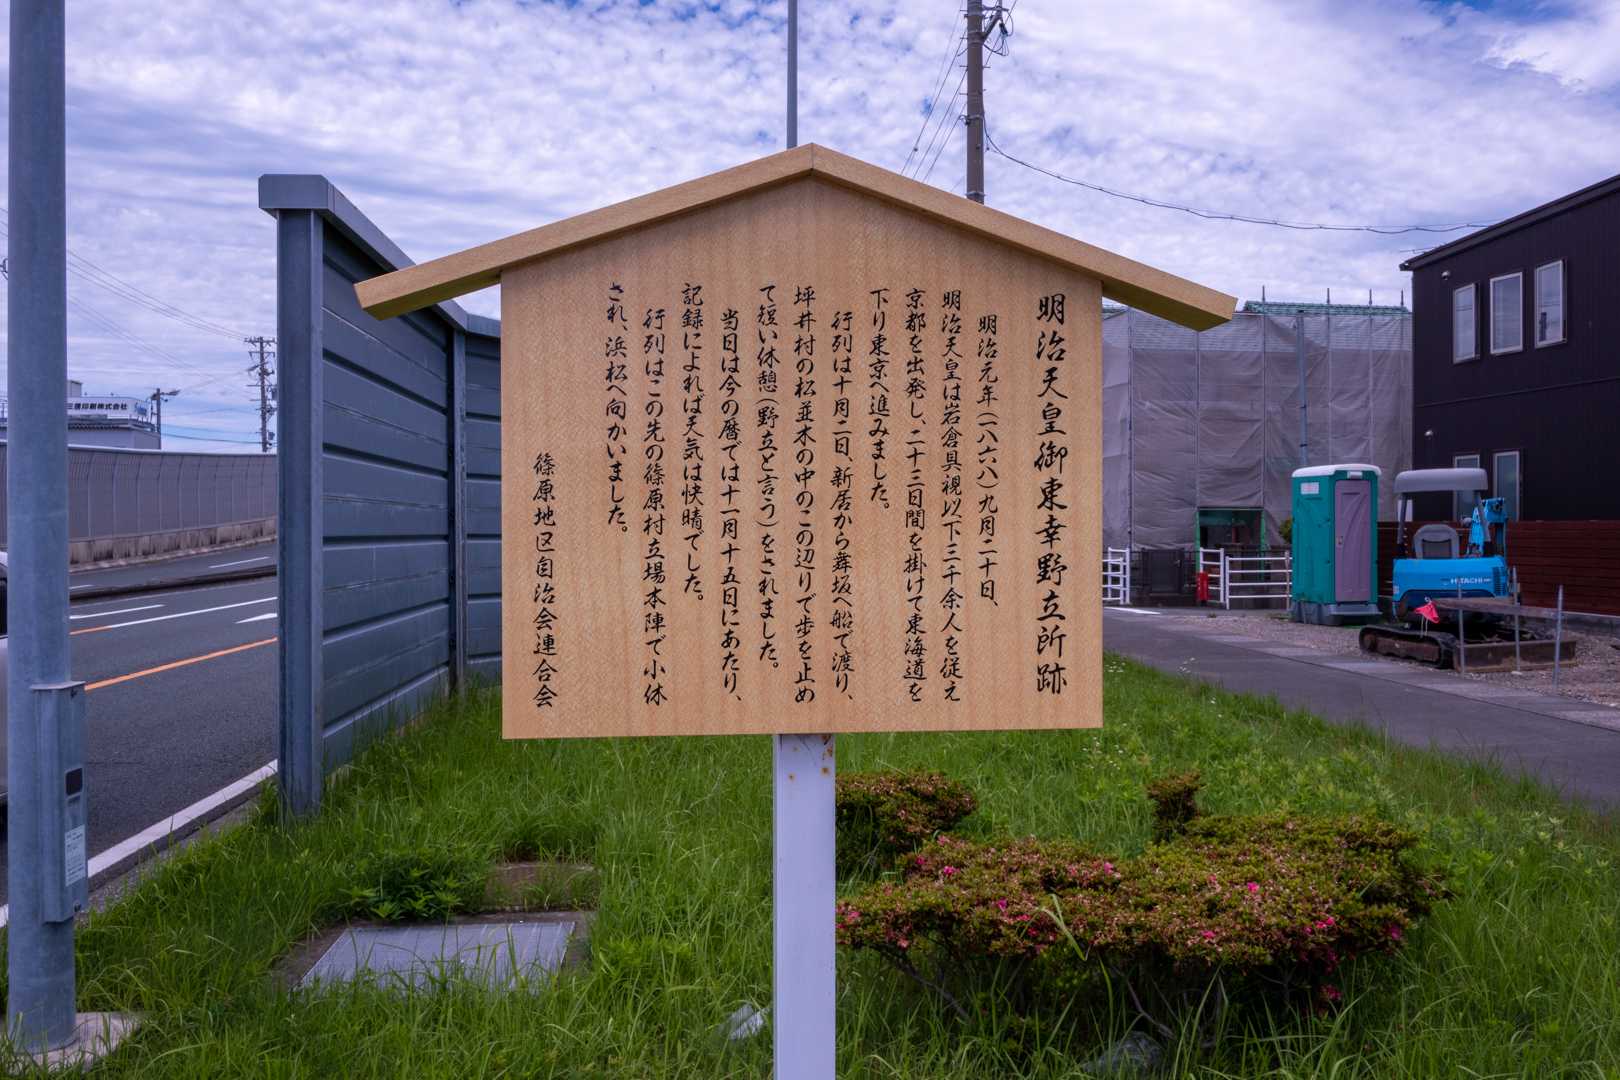 明治天皇御東幸野立所跡
明治元年（一八六八）九月二十日、
明治天皇は岩倉具視以下三千余人を従え
京都を出発し、二十三日間を掛けて東海道を
下り東京へ進みました。
行列は十月二日、新居から舞坂へ船で渡り、
坪井村の松並木の中のこの辺りで歩を止め
て短い休憩（野立と言う）をされました。
当日は今の暦では十一月十五日にあたり、
記録によれば天気は快晴でした。
行列はこの先の篠原村立場本陣で小休
され、浜松へ向かいました。
篠原地区自治会連合会
HITACHI